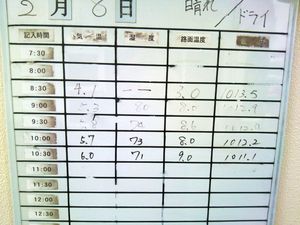 2月6日 晴れ/ドライ
記入時間 気温 湿度 路面温度
7:30
8:00
8:30 4.1 -- 3.0 1013.5
9:00 5.3 80 8.0
9:30 8.6
10:00 5.7 73 8.0 1012.2
10:30 6.0 71 9.0 1011.1
11:00
11:30
12:00
12:30